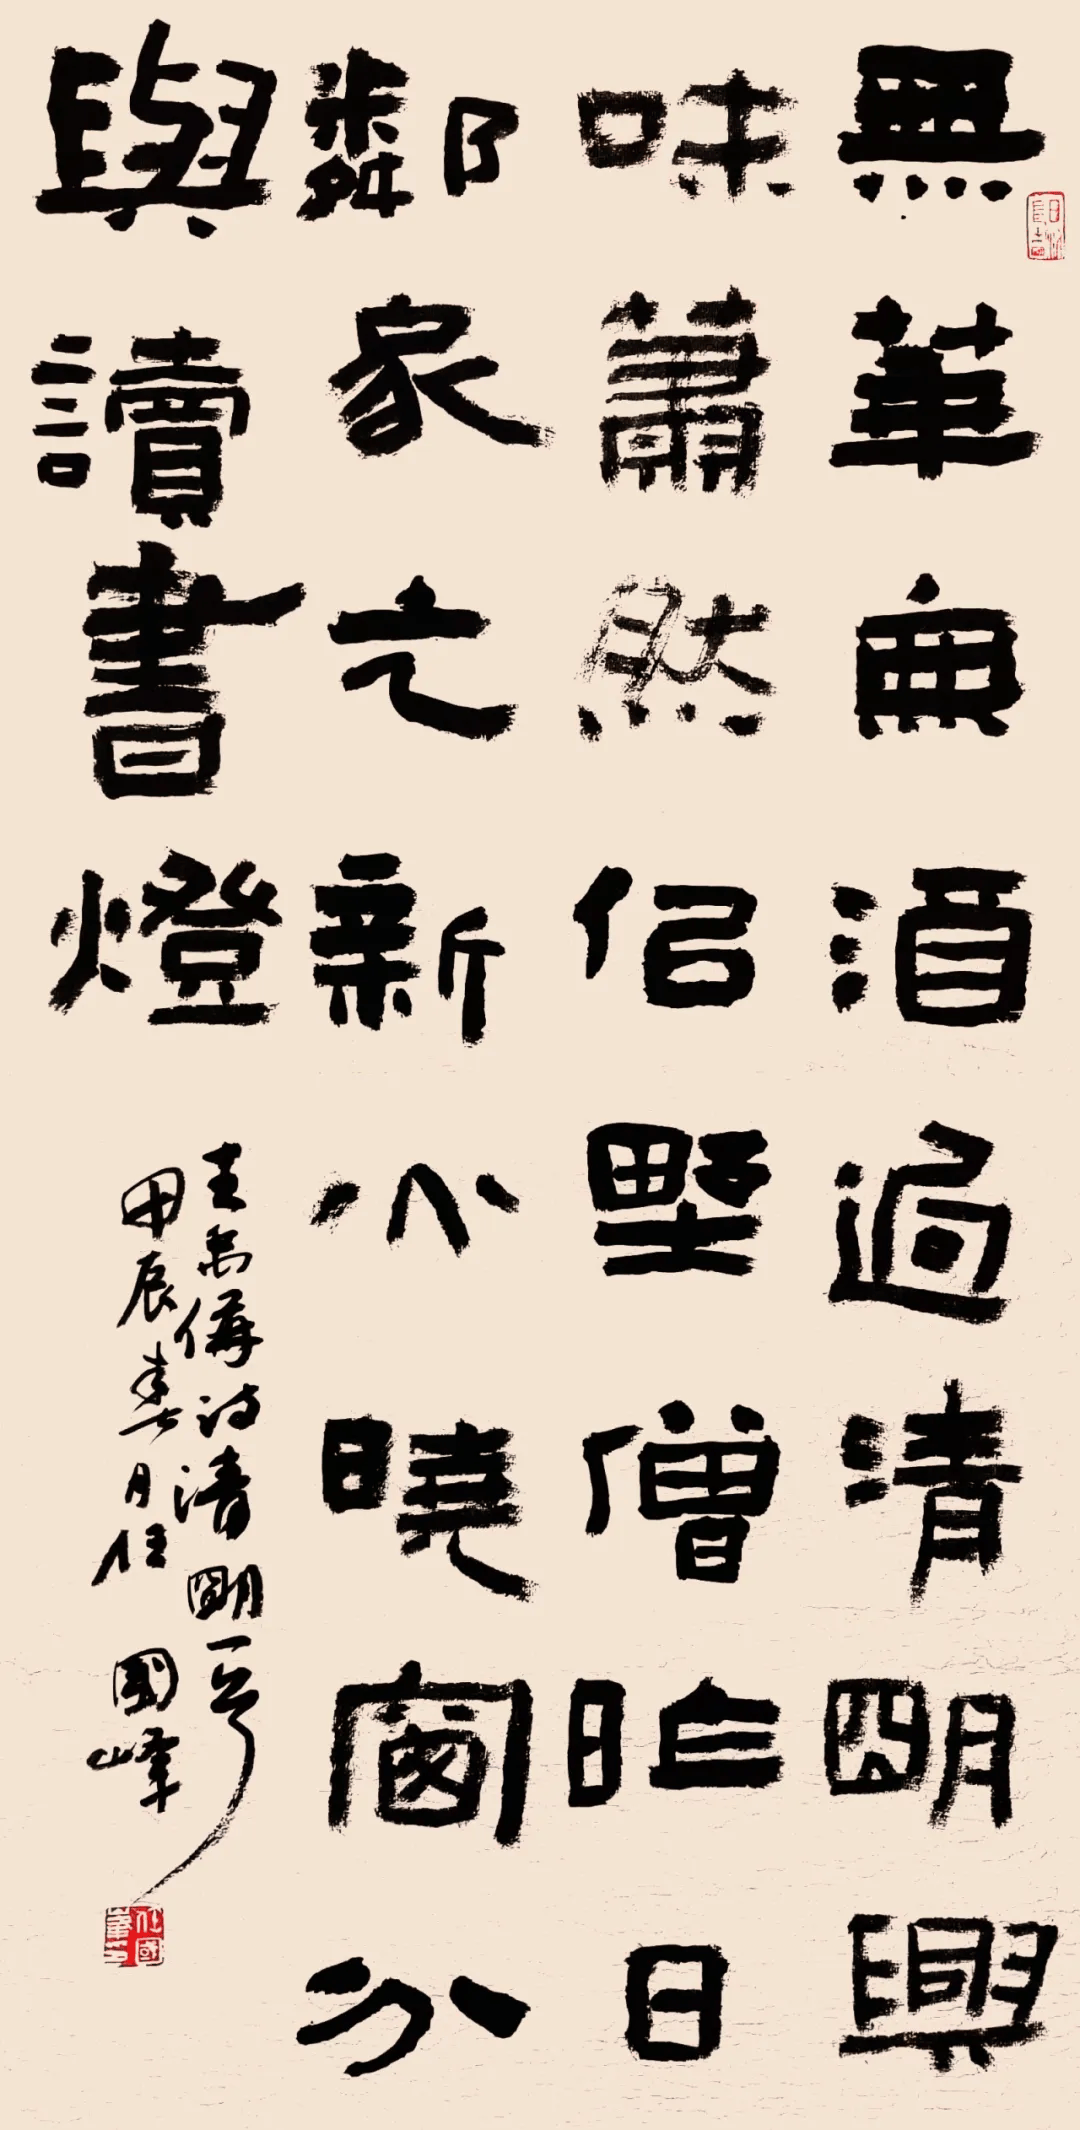 無華無酒過清明興
味蕭然佀野僧昨日
鄰家乞新火曉窗分
與讀書燈
王禹偁詩清明一首
甲辰春月任國峰
任國峯印